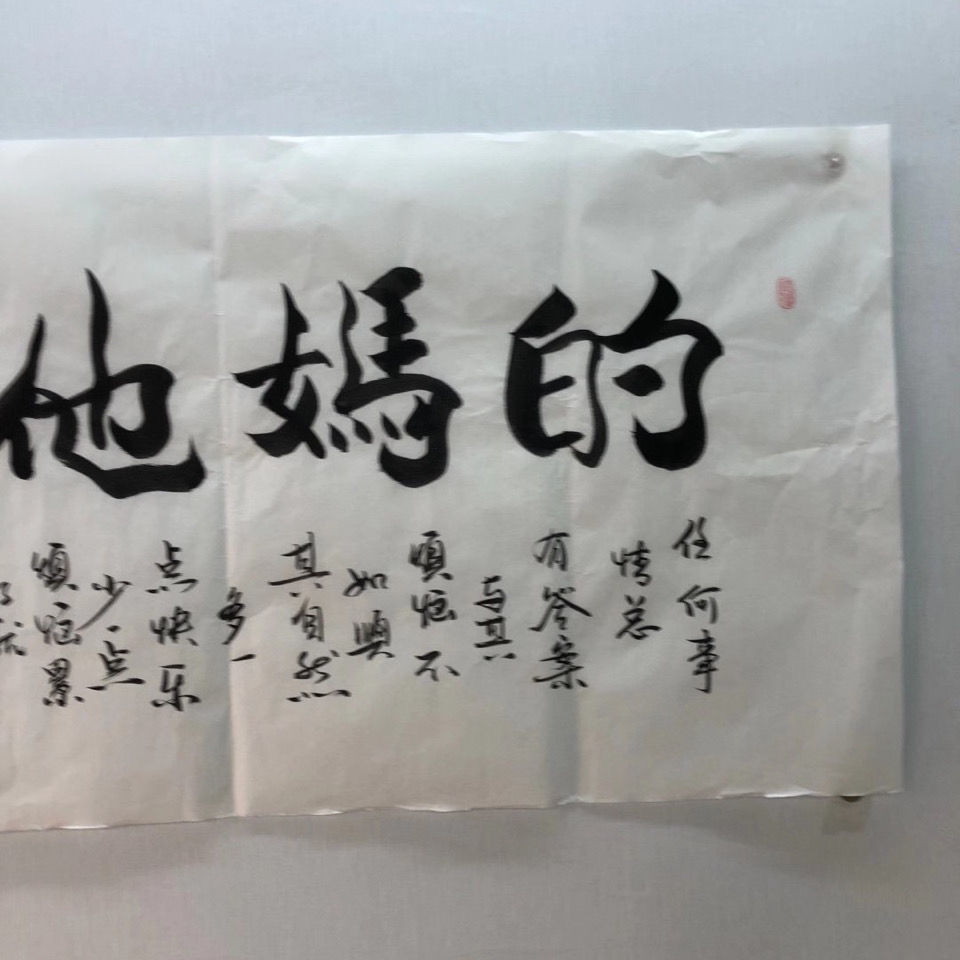 他媽的
任何事
情总
有答案
与其
煩恼不
如順
其自然
多一
点快乐
少一点
煩恼累